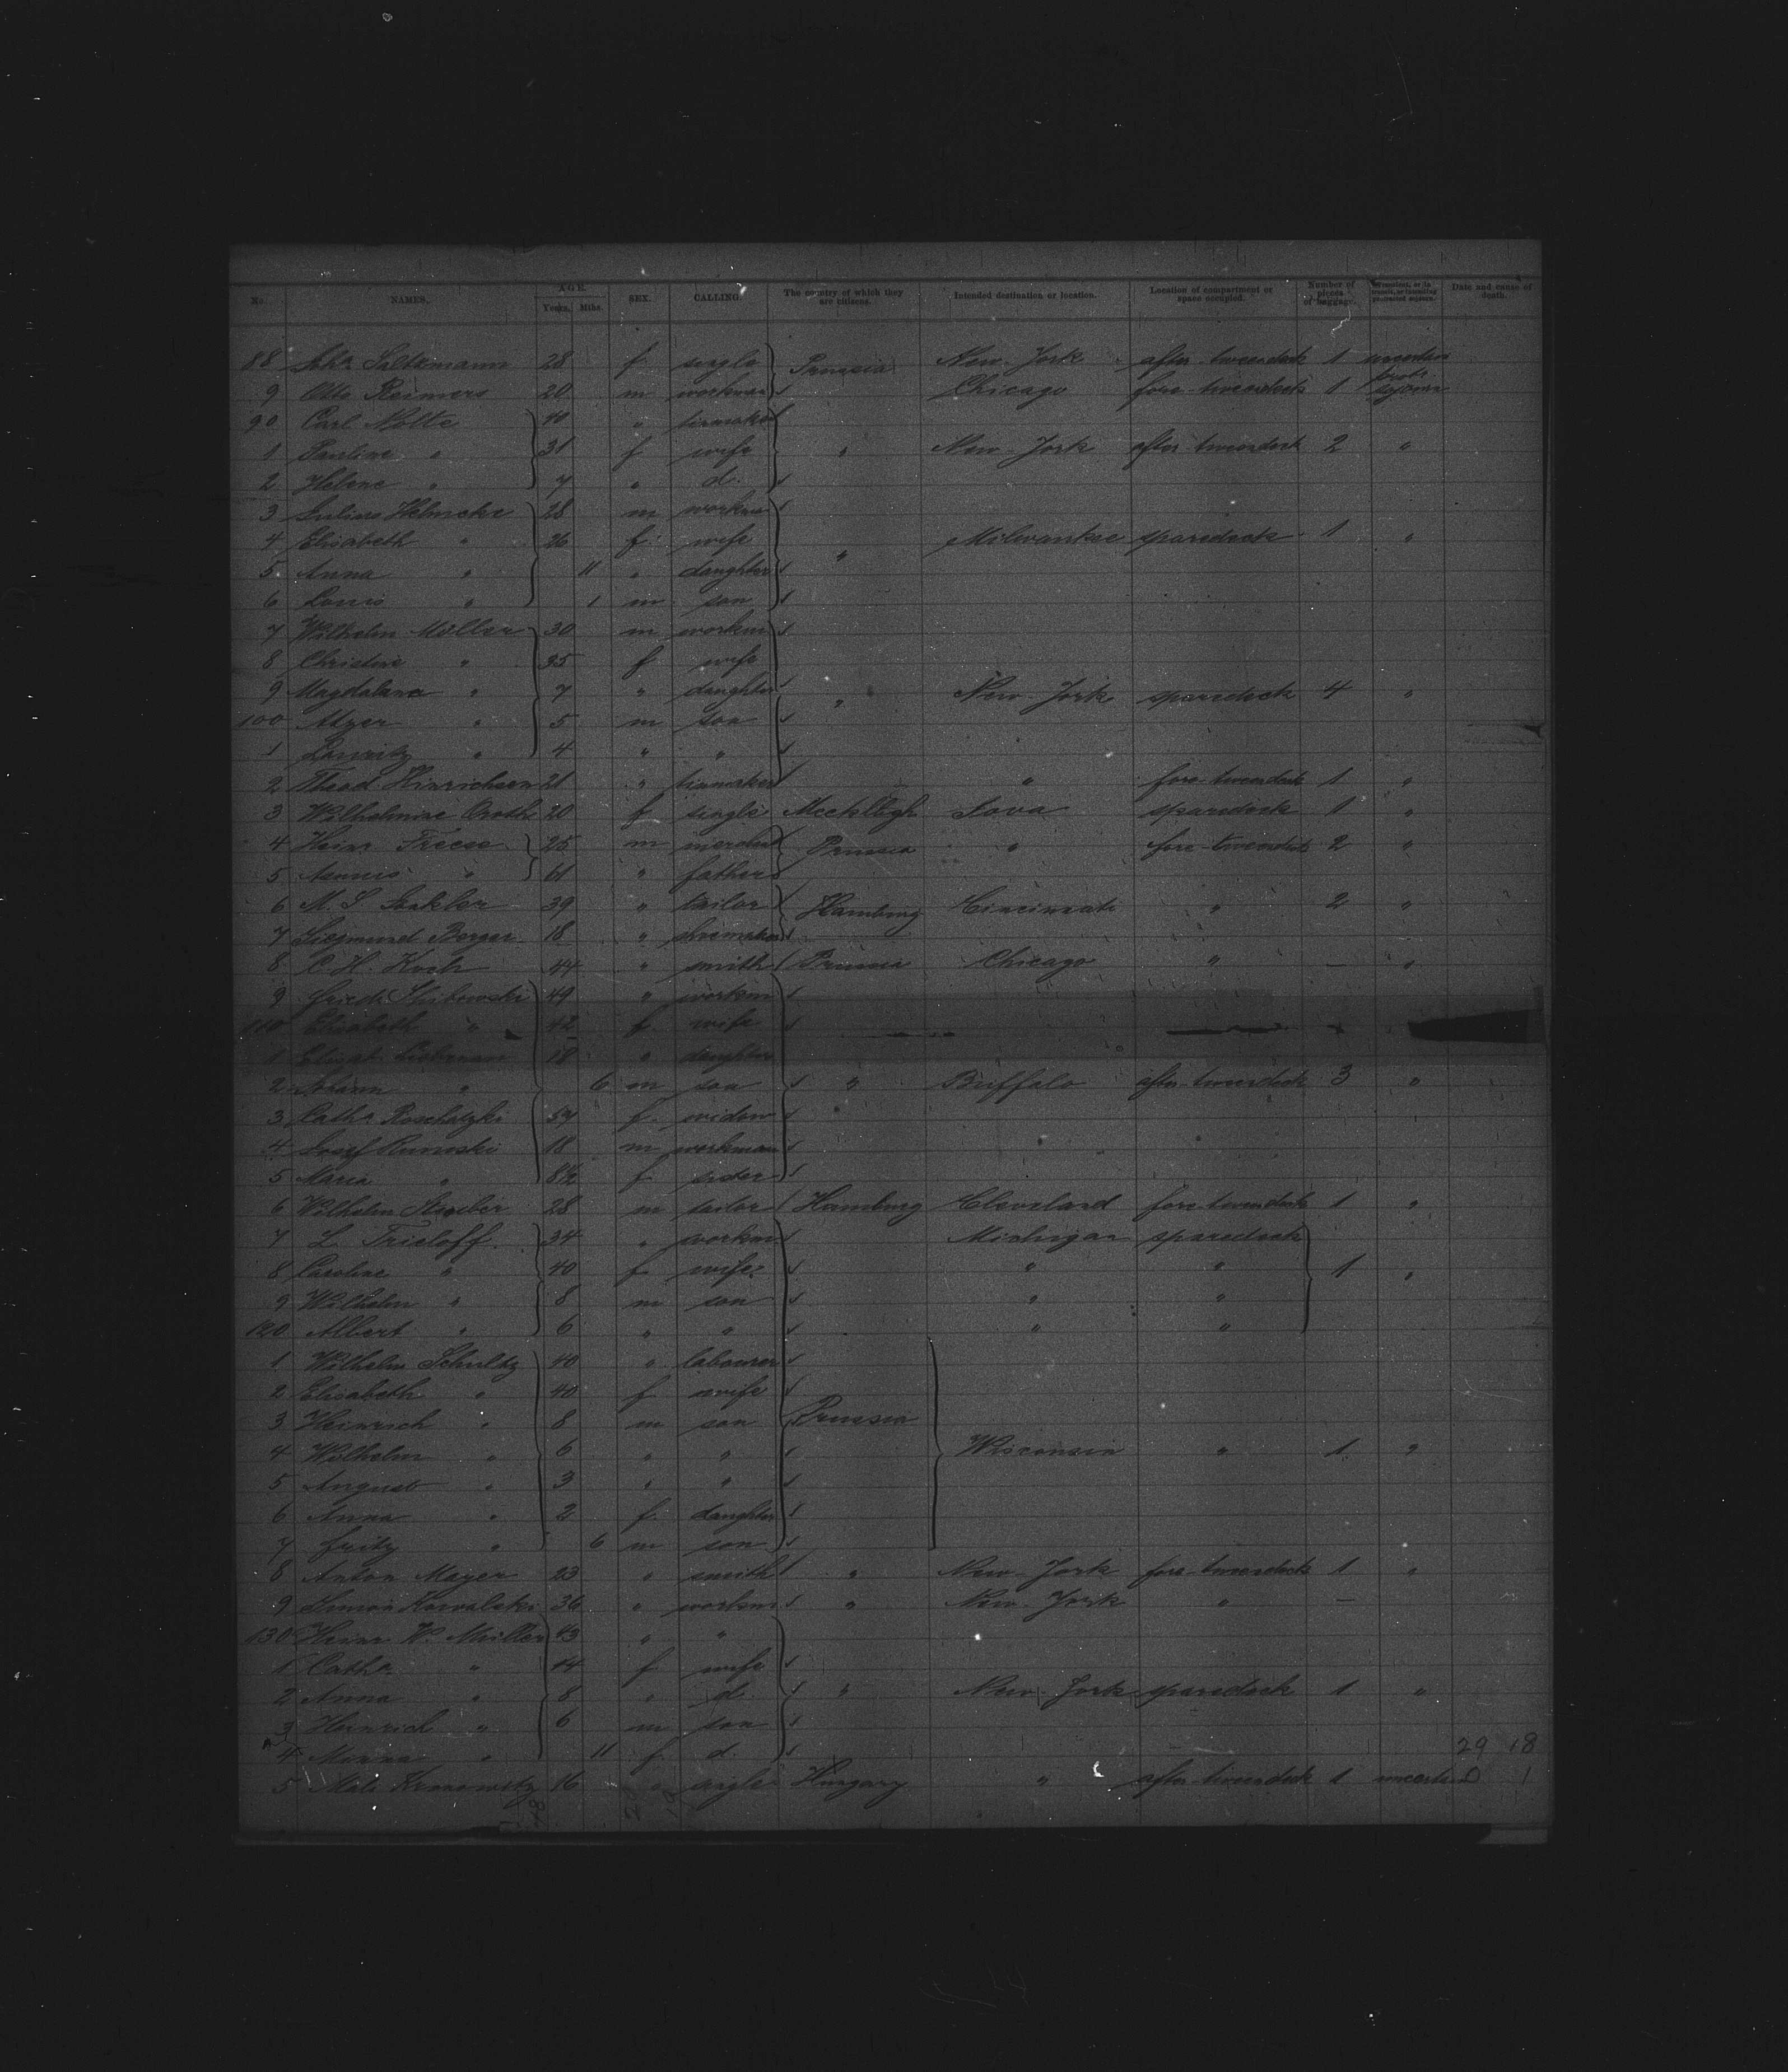 No. NAMES. AGE. Years. Mths. SEX. CALLING. The country of which they are citizens. Intended destination or location. Location of compartment or space occupied. Number of pieces of baggage. Date and cause of death.
88 Saltzmann 28 f single Prussia New-York after-tweendeck 1
9 Otto Reimers 20 m workman Chicago fore-tweendeck 1
90 Carl Nolte 40 "
1 Pauline " 31 f wife " New-York after tweendeck 2 "
2 Helene " 7 " d.
3 Julius Helmcke 28 m workmn
4 Elisabeth " 26 f wife " Milwaukee sparedeck 1 "
5 Anna " 11 " daughter
6 Louis " 1 m son
7 Wilhelm Möller 30 m workmn
8 Christine " 35 f wife
9 Magdalena " 7 " daughter " New-York sparedeck 4 "
100 " 5 m son
1 Lauritz " 4 " "
2 Hinrichsen 21 " " fore-tweendeck 1 "
3 Wilhelmine 20 f single Mecklbgh Iova sparedeck 1 "
4 Heinr Friese 25 m Prussia " fore-tweendeck 2 "
5 " 61 " father
6 M. S. 39 " tailor Hamburg Cincinnati " 2 "
7 Siegmund Berger 18 " shoemaker
8 C. H. Koch 44 " smith Prussia Chicago " — "
9 Friedr 49 " workmn
110 Elisabeth " 42 f wife
1 Elisab. 18 " daughter
2 Johann " 6 m son " Buffalo after-tweendeck 3 "
3 Catha 54 f widow
4 Josef 18 m workman
5 Maria " 8½ f sister
6 Wilhelm 28 m tailor Hamburg Cleveland fore-tweendeck 1 "
7 L Trieloff 34 " workmn Michigan sparedeck
8 Caroline " 40 f wife " " 1 "
9 Wilhelm " 8 m son " "
120 Albert " 6 " " " "
1 Wilhelm Schultz 40 " labourer
2 Elisabeth " 40 f wife
3 Heinrich " 8 m son Prussia
4 Wilhelm " 6 " " Wisconsin " 1 "
5 August " 3 " "
6 Anna " 2 f daughter
7 Fritz " 6 m son
8 Anton Mayer 23 " smith " New-York fore-tweendeck 1 "
9 Simon Kowalski 36 " workmn " New-York " —
130 Heinr W. Müller 43 " "
1 Catha " 44 f wife
2 Anna " 8 " d. " New-York sparedeck 1 "
3 Heinrich " 6 m son
4 Minna " 11 f d. 29 18
5 16 " single Hungary " after tweendeck 1 1